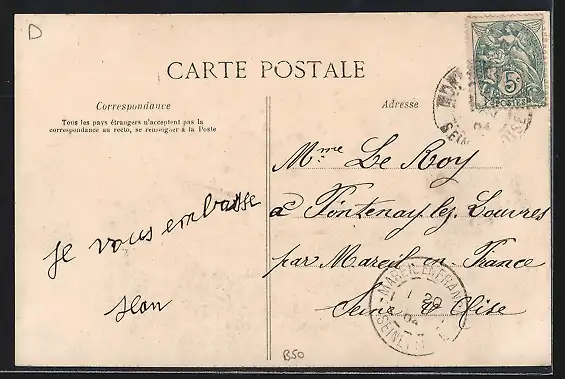 D
CARTE POSTALE
Correspondance
Tous les pays étrangers n'acceptent pas la
correspondance au recto, se renseigner à la Poste
je vous embrasse
Jean
Adresse
5c
POSTES
Mme Le Roy
à Fontenay lez Louvres
par Mareil en France
Seine & Oise
MAREIL EN FRANCE
B50